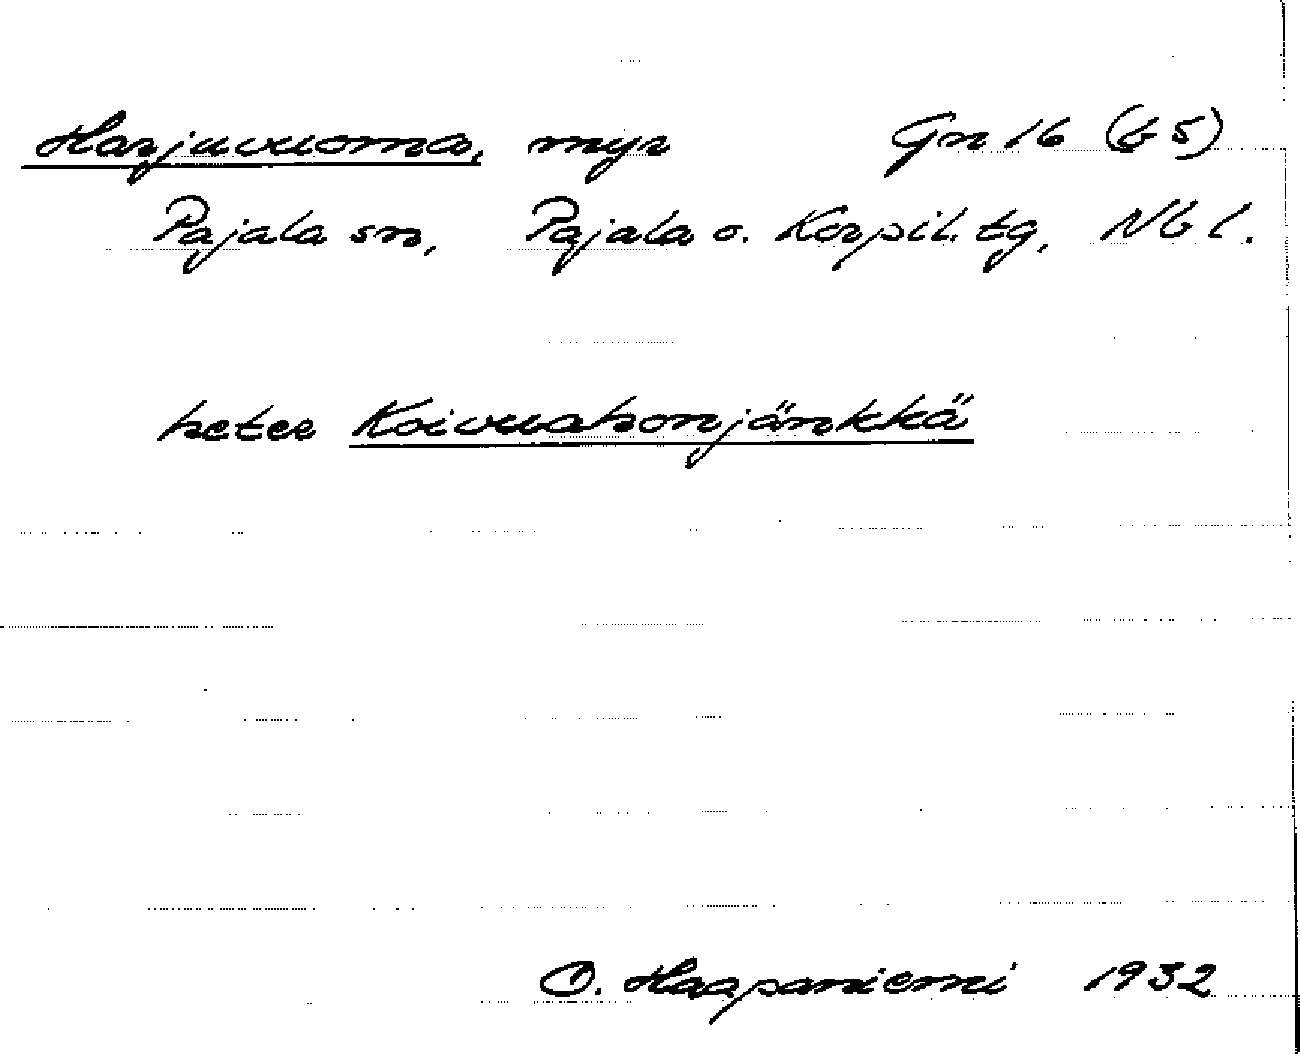 Harjuvuoma, myr Gn 16 (b 5)
Pajala sn, Pajala o. Korpil. tg, Nb l.
heter Koivuahonjänkkä
O. Haapaniemi 1932